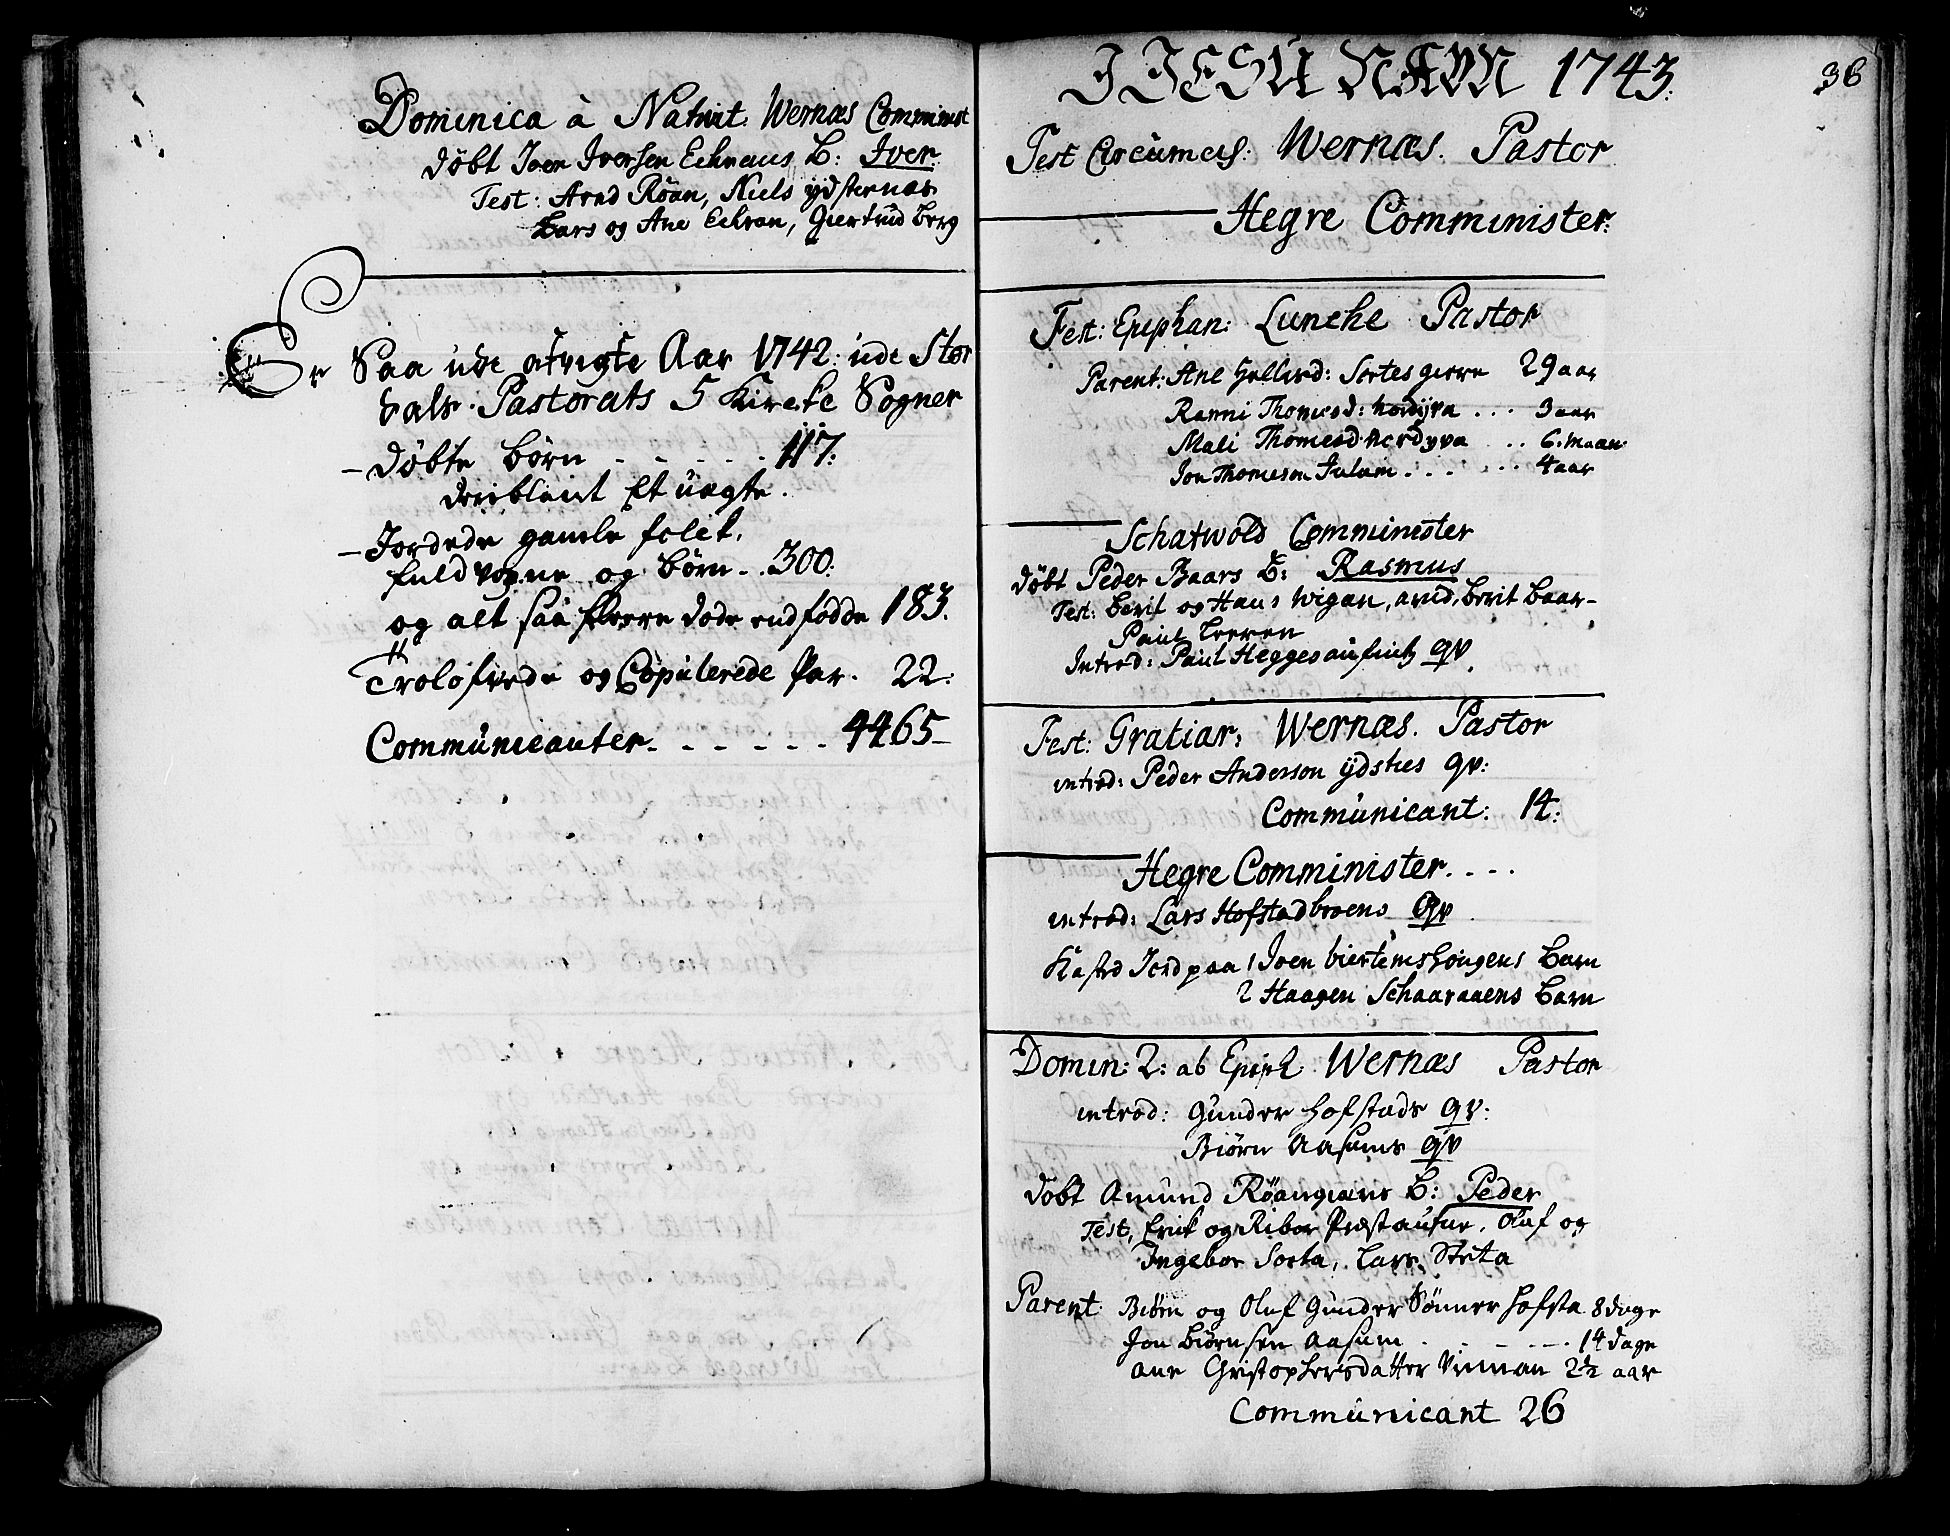 Dominica à Nativit. Wernæs Comminist
døbt Joen Iversen Echraus B: Iver.
Test: Arnd Röan, Niels ydsternæs
Lars og Ane Echran, Giertrud Berg
Er Saa udi afvigte Aar 1742 ude Stør
dals Pastorats 5 Kircke Sogner
– døbte børn - - - - - 117:
deriblant Et uægte.
– Jordede gamle folck,
fuldvogne og børn - . 300:
og alt saa fleere døde end fødde 183.
Trolofvede og Copulerede Par. 22:
Communicanter. - - - - - 4465–
36
I JESU NAVN 1743.
Fest Circumcis: Wernæs. Pastor
Hegre Comminister:
Fest: Epiphan: Luncke Pastor
Parent: Ane Hellesd: Sortesgierre 29 aar
Ranni Thomesd: Nordyva . . . 3 aar
Mali Thomesd: Nordyva . . 6. maan
Jon Thomesen Julum . . . . . . 4 aar
Schatwold Comminister
døbt Peder Baars B: Rasmus
Test: Berit og Hans Wigan, arnd, Berit Baar-
Paul Leeren
Introd: Paul Heggesaufinty qv.
Fest: Gratiar: Wernæs. Pastor
introd: Peder Anderson ydsties qv:
Communicant: 14:
Hegre Comminister. - - -
introd: Lars Hofstadbroens qv
Kasted Jord paa 1 Joen biertemshougens Barn
2 Haagen Schaaraaens Barn
Domin: 2: ab Epiph Wernæs Pastor
introd: Gunder Hofstads qv:
Biörn Aasums qv
døbt Amund Röangians B: Peder
Test, Erick og Ribor Præstaufne, Oluf og
Ingebor Sorta, Lars Steta
Parent: Biörn og Oluf Gunder Sönner Hofsta 8 dage
Jon Biörnsen Aasum . - - - - - 14 dage
ane Christophersdatter Vinnan 2½ aar
Communicant 26